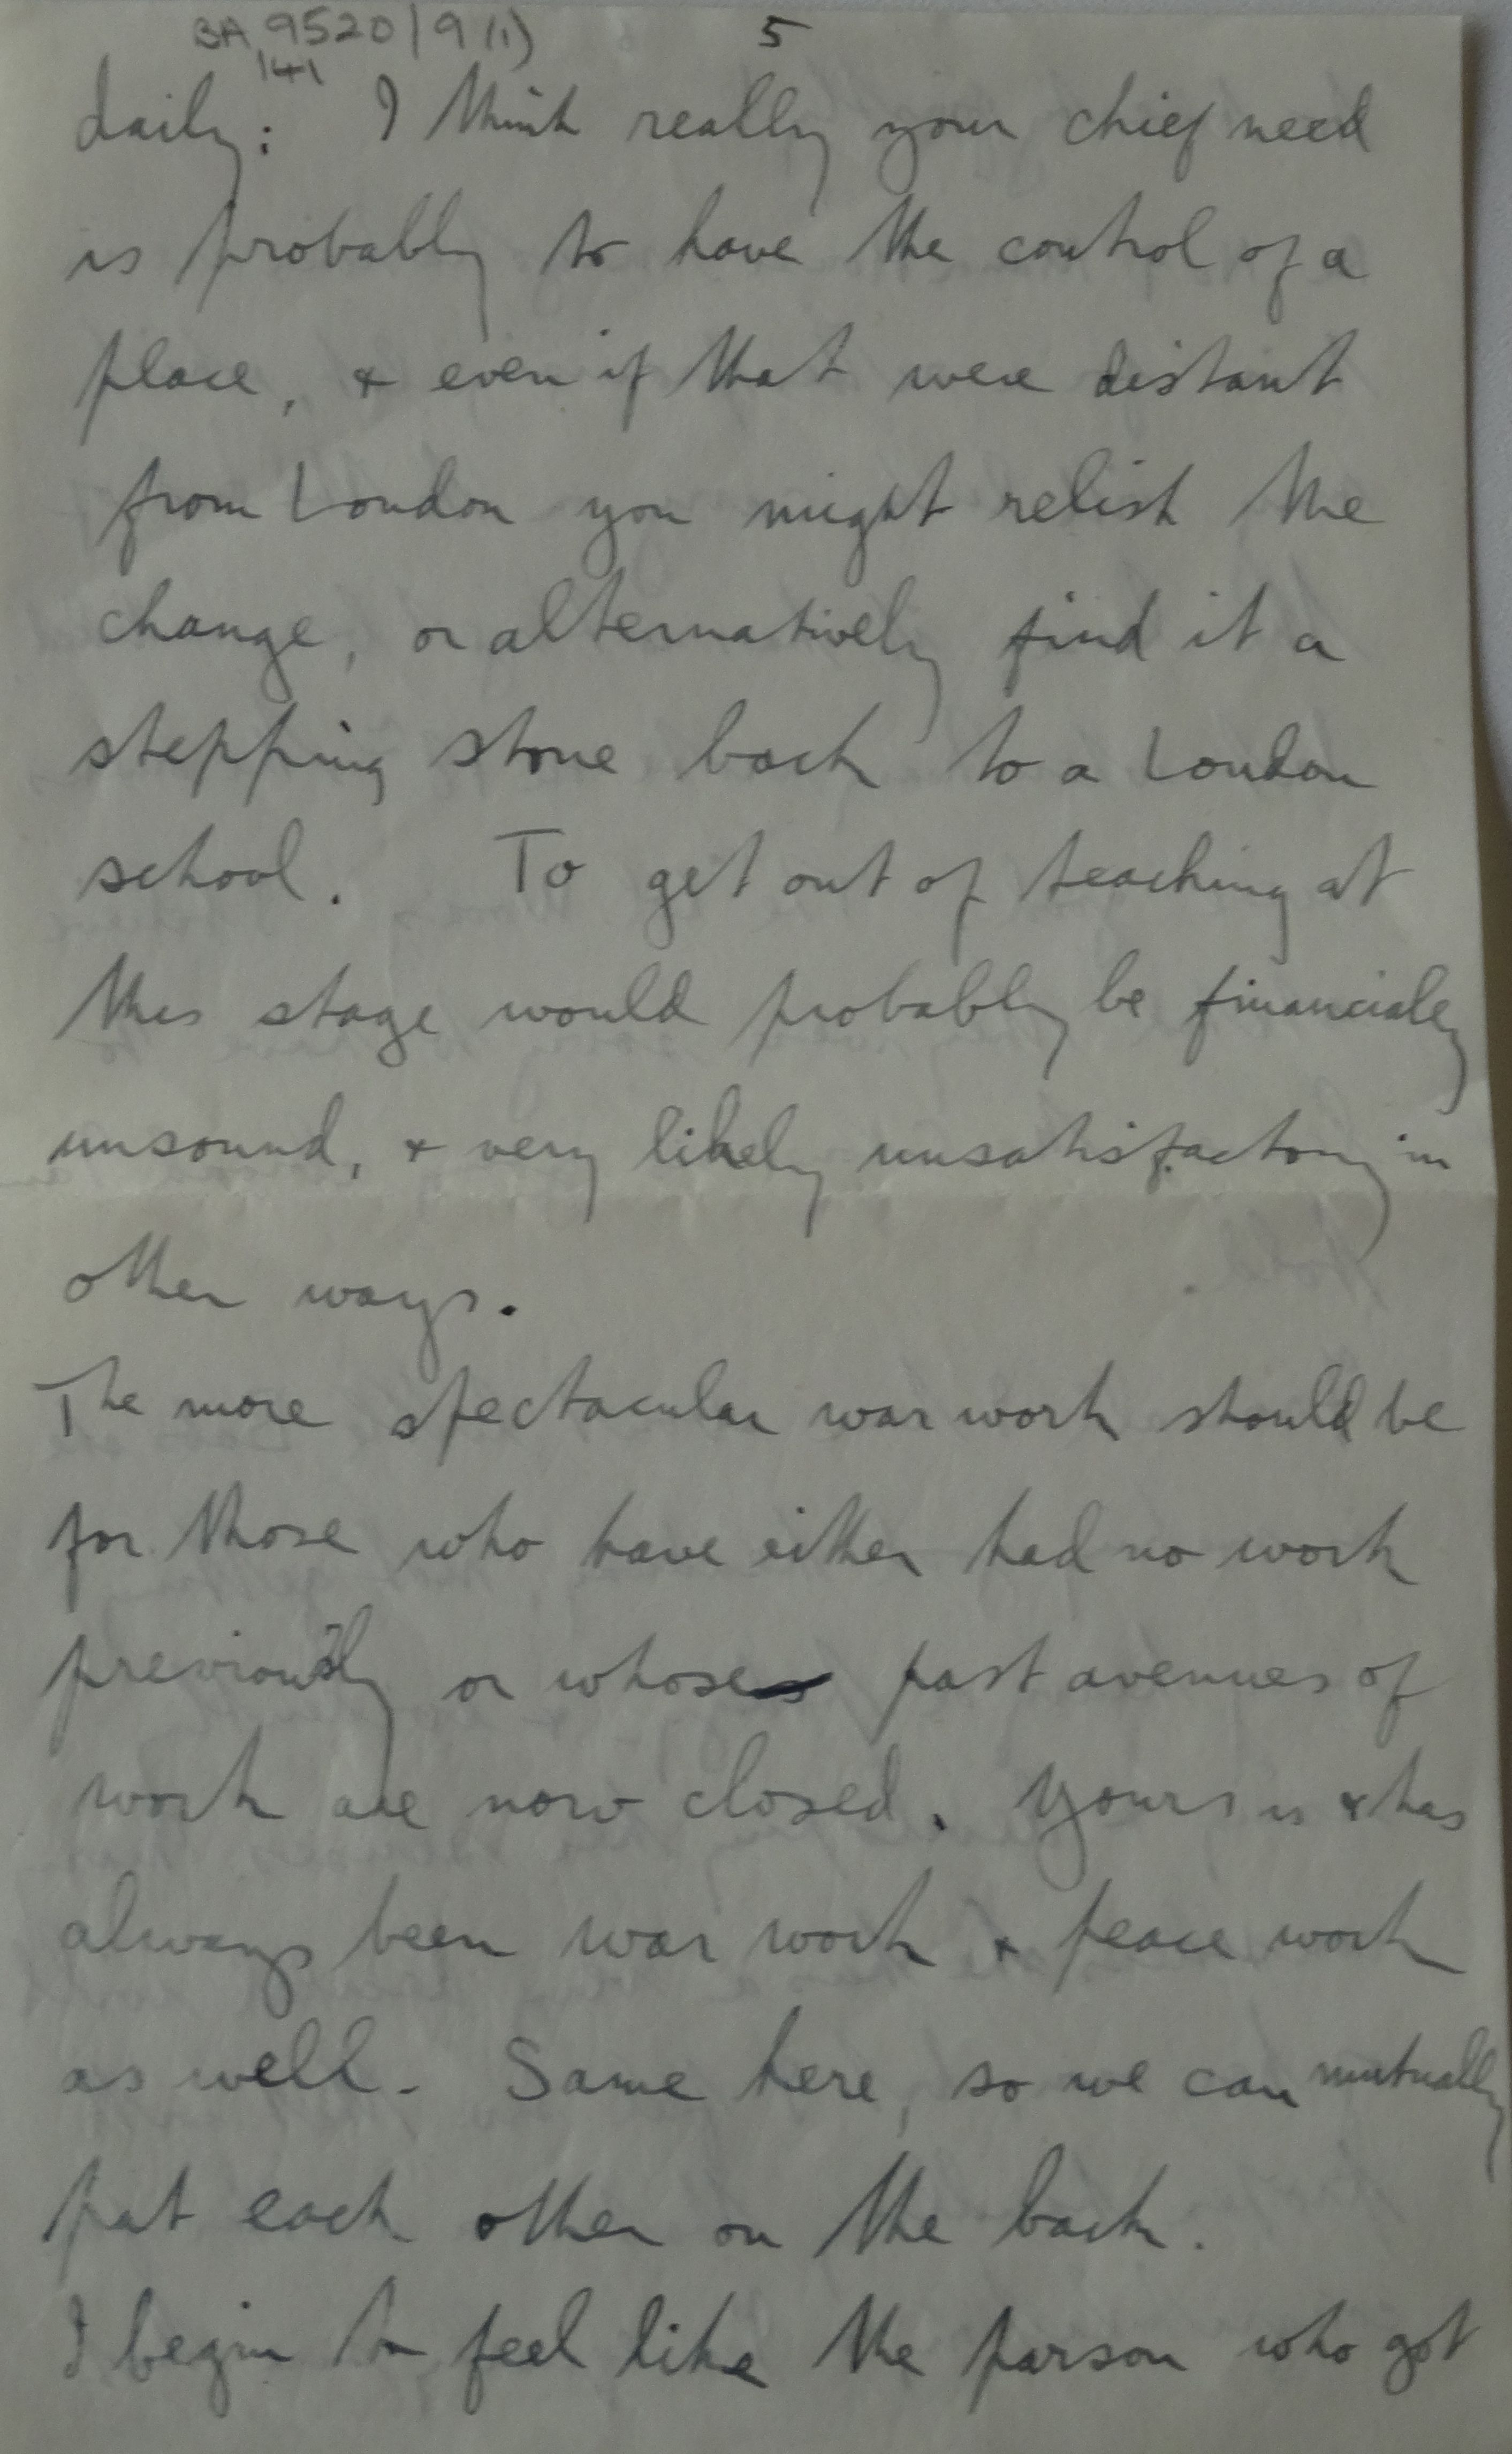 BA 9520/9 (1)
141
5
daily: I think really your chief need
is probably to have the control of a
place, & even if that were distant
from London you might relish the
change, or alternatively find it a
stepping stone back to a London
school. To get out of teaching at
this stage would probably be financially
unsound, & very likely unsatisfactory in
other ways.
The more spectacular war work should be
for those who have either had no work
previously or whose past avenues of
work are now closed. Yours is & has
always been war work & peace work
as well. Same here, so we can mutually
pat each other on the back.
I begin to feel like the parson who got